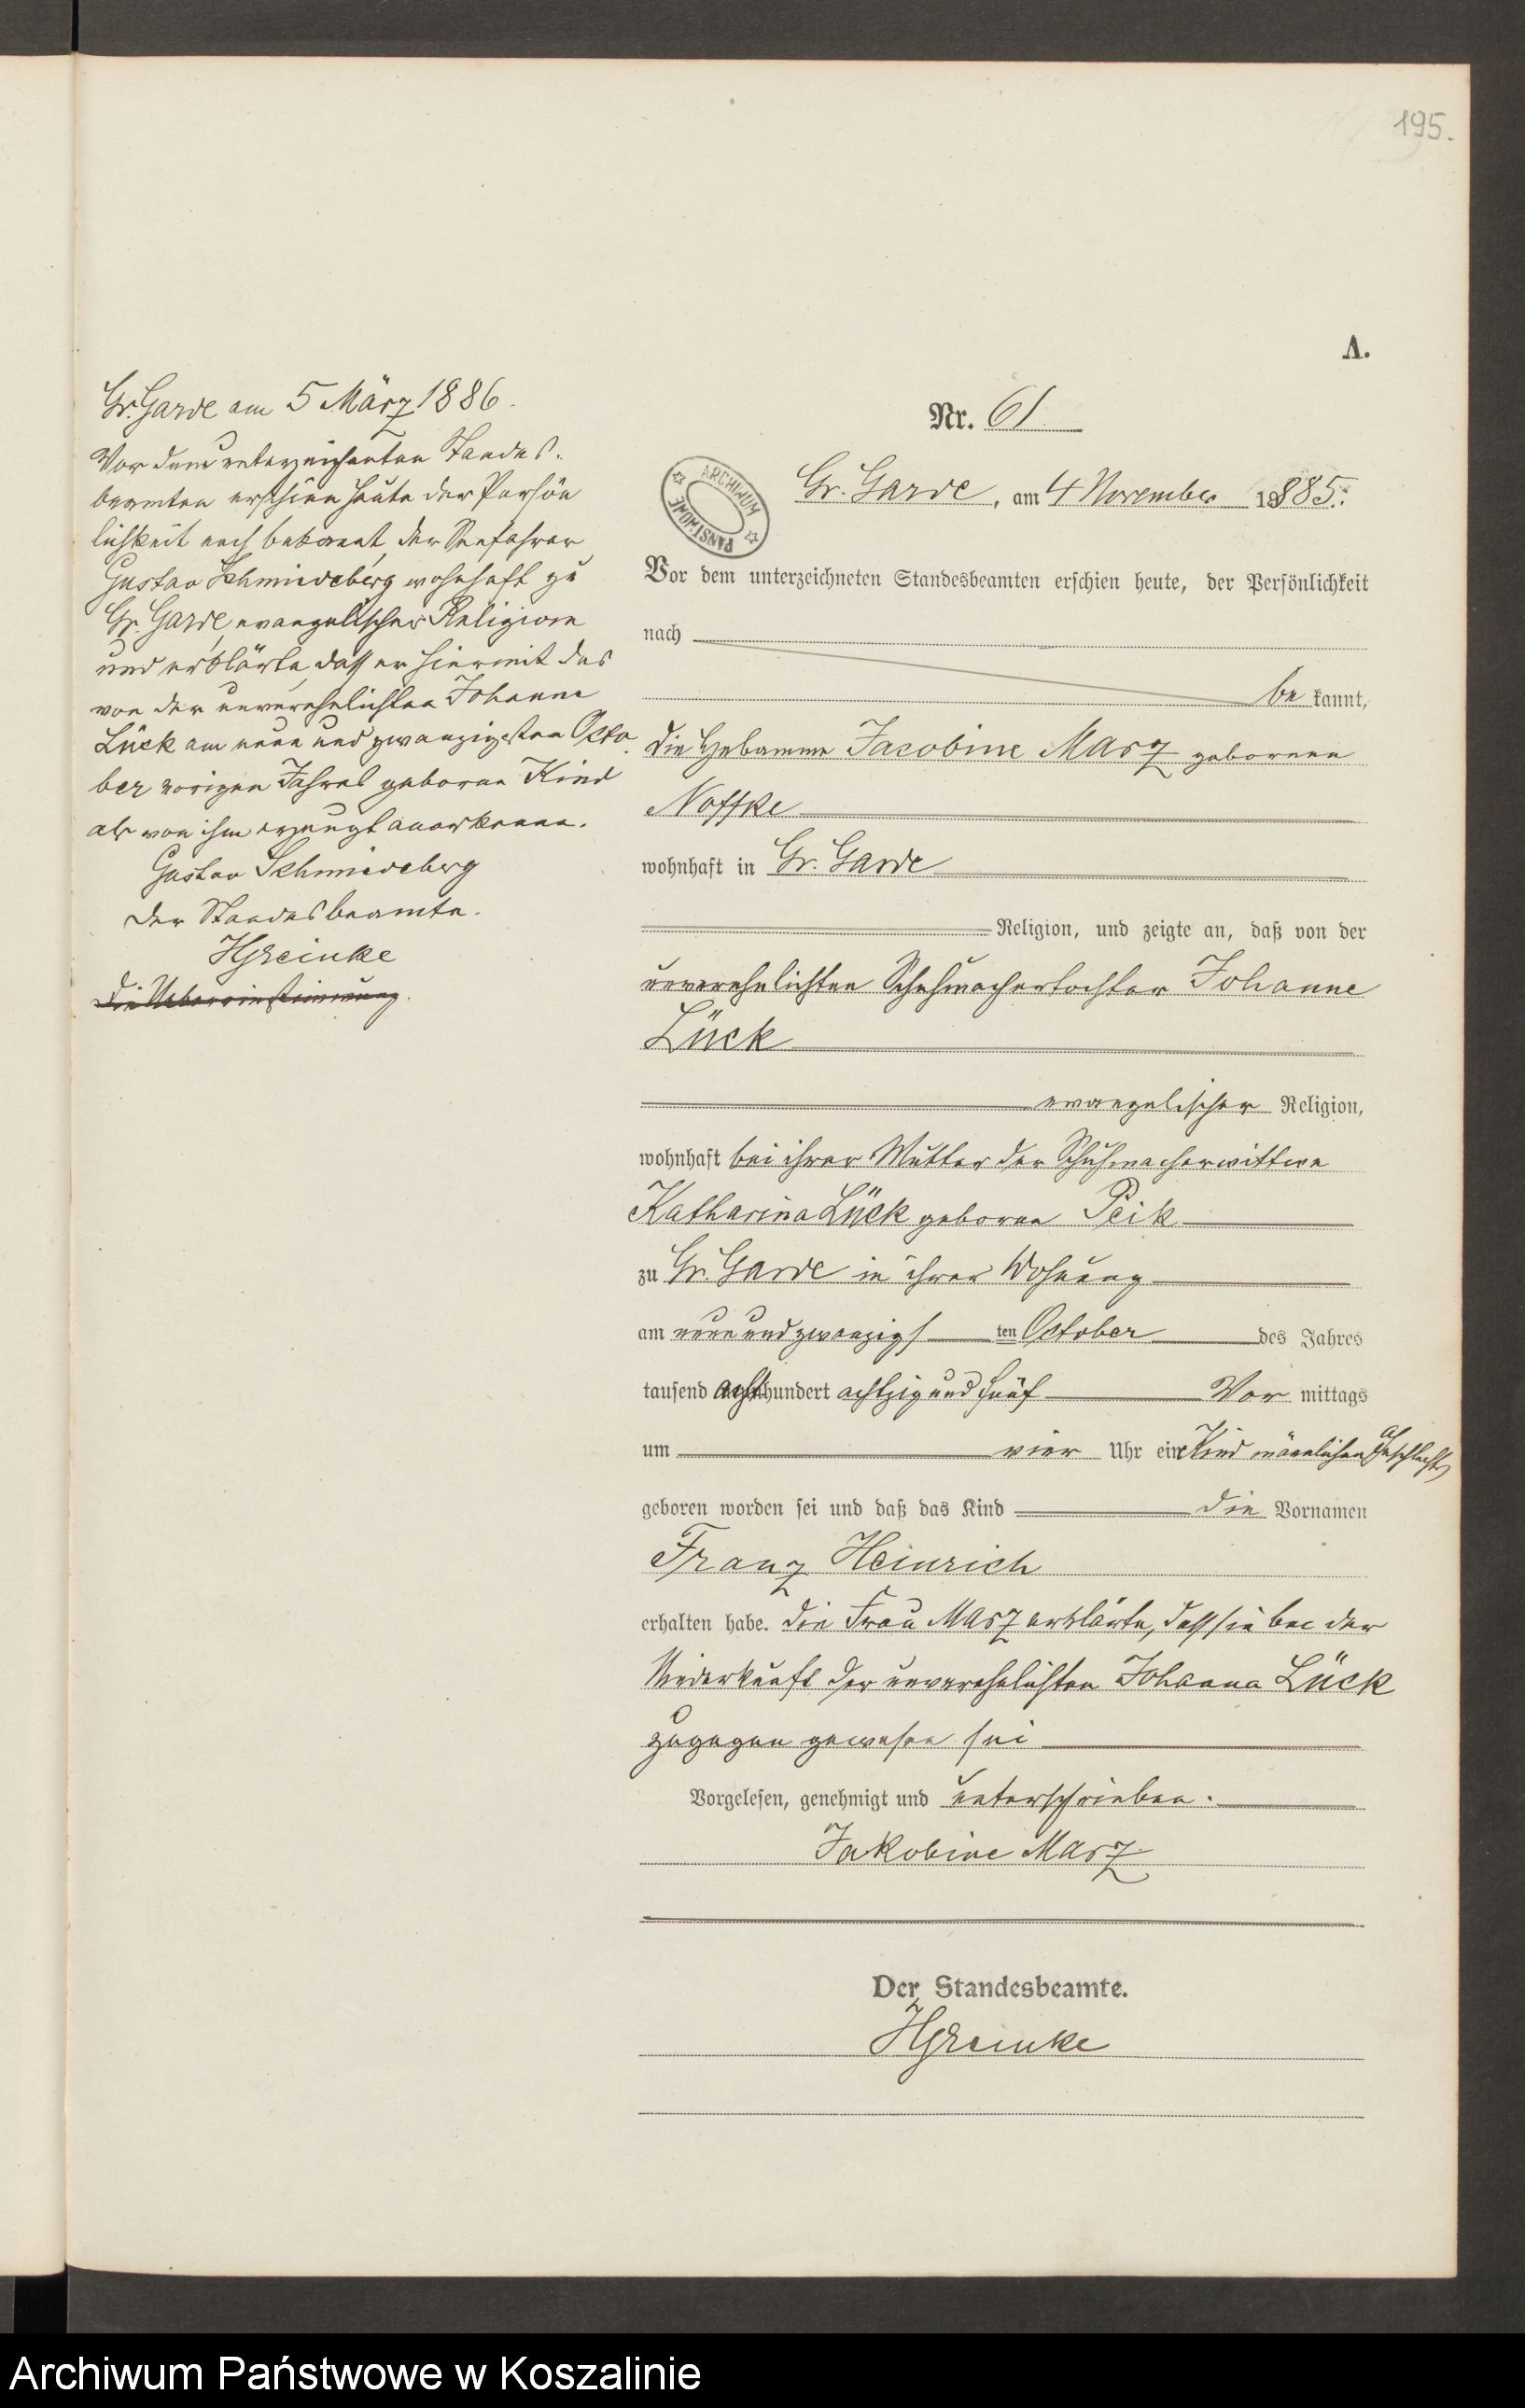 195.
A.
Gr. Garde am 5 März 1886.
Vor dem unterzeichneten Standes-
beamten erschien heute der Persön
lichkeit nach bekannt, der Seefahrer
Gustav Schmiedeberg wohnhaft zu
Gr. Garde, evangelischer Religion
und erklärte, dass er hiermit das
von der unverehelichten Johanne
Lück am neun und zwanzigsten Octo
ber vorigen Jahres geborene Kind
als von ihm erzeugt anerkenne.
Gustav Schmiedeberg
Der Standesbeamte.
Die Uebereinstimmung.
Nr. 61
ARCHIWUM PAŃSTWOWE
Gr. Garde, am 4 November 1885.
Vor dem unterzeichneten Standesbeamten erschien heute, der Persönlichkeit
nach
be kannt,
die Hebamme Jacobine Marz geborene
Noffke
wohnhaft in Gr. Garde
Religion, und zeigte an, daß von der
unverehelichten Schuhmachertochter Johanne
Lück
evangelischer Religion,
wohnhaft bei ihrer Mutter der Schuhmacherwittwe
Katharina Lück geborene Peik
zu Gr. Garde in ihrer Wohnung
am neun und zwanzigs ten October des Jahres
tausend acht hundert achtzig und fünf Vor mittags
um vier Uhr ein Kind männlichen Geschlechts
geboren worden sei und daß das Kind die Vornamen
Franz Heinrich
erhalten habe. Die Frau Marz erklärte, dass sie bei der
Niederkunft der unverehelichten Johanna Lück
zugegen gewesen sei
Vorgelesen, genehmigt und unterschrieben.
Jakobine Marz
Der Standesbeamte.
Archiwum Państwowe w Koszalinie